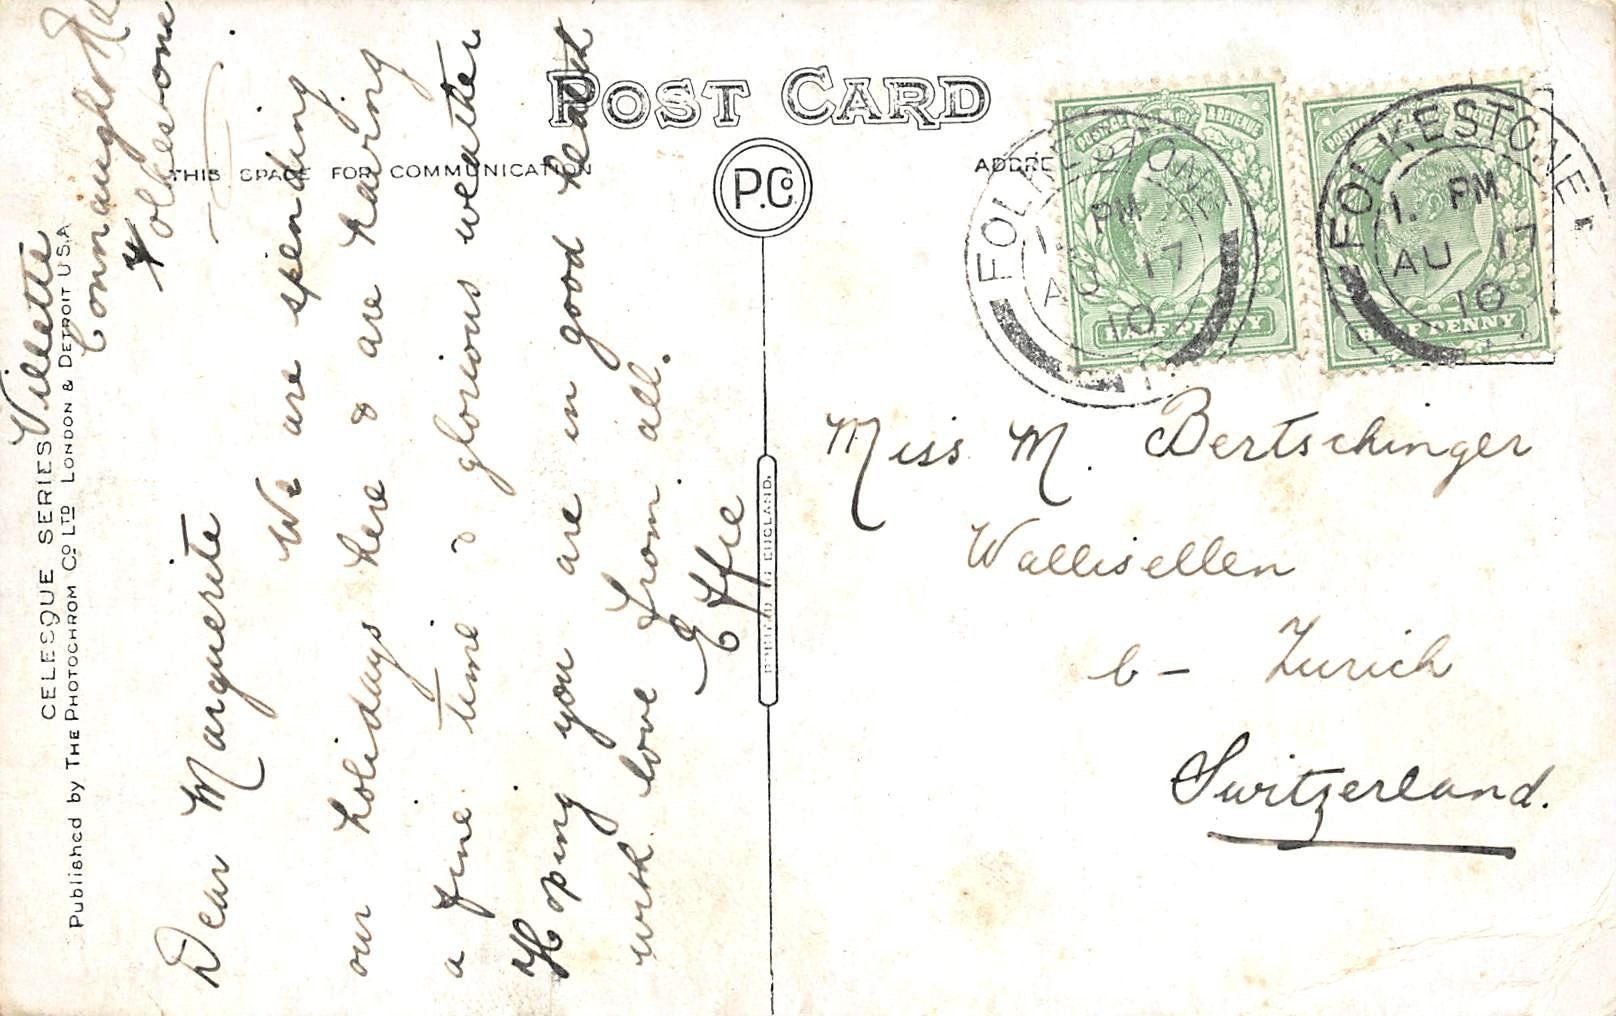 POST CARD
THIS SPACE FOR COMMUNICATION
ADDRE
P.Co.
CELESQUE SERIES
Published by THE PHOTOCHROM Co LTD LONDON & DETROIT U.S.A
PRINTED IN ENGLAND.
Villette
Connaught Rd
Folkestone
Dear Marguerite
We are spending
our holidays here & are having
a fine time & glorious weather
Hoping you are in good health
with love from all.
Effie
POSTAGE & REVENUE
HALF PENNY
FOLKESTONE
1. PM
AU 17
10
POSTAGE
HALF PENNY
FOLKESTONE
1. PM
AU 17
10
Miss M. Bertschinger
Wallisellen
b- Zurich
Switzerland.